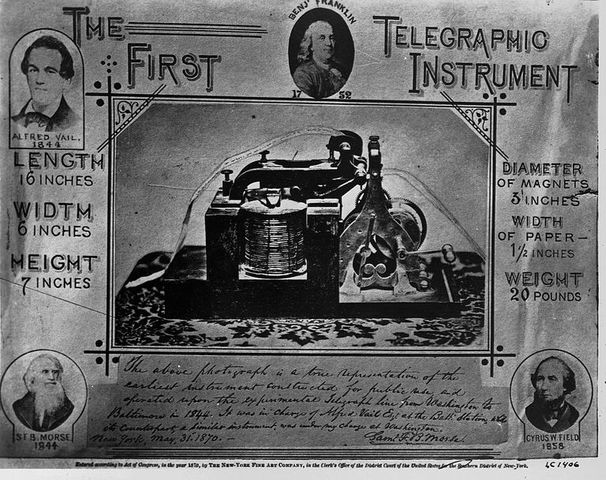 THE FIRST
BENJ. FRANKLIN
1752
TELEGRAPHIC
INSTRUMENT
ALFRED VAIL.
1844
LENGTH
16 INCHES
WIDTH
6 INCHES
HEIGHT
7 INCHES
DIAMETER
OF MAGNETS
3 INCHES
WIDTH
OF PAPER —
1½ INCHES
WEIGHT
20 POUNDS
The above photograph is a true representation of the
earliest instrument constructed for public use, and
operated upon the experimental Telegraph line from Washington to
Baltimore in 1844. It was in charge of Alfred Vail Esq at the Balt. Station, and
its Counterpart, a similar instrument, was under my charge at Washington.
New York, May, 31. 1870. —
Saml. F. B. Morse
S.F.B. MORSE
1844
CYRUS W FIELD
1858
Entered according to Act of Congress, in the year 1870, by THE NEW-YORK FINE ART COMPANY, in the Clerk's Office of the District Court of the United States for the Southern District of New-York.
LC 1406